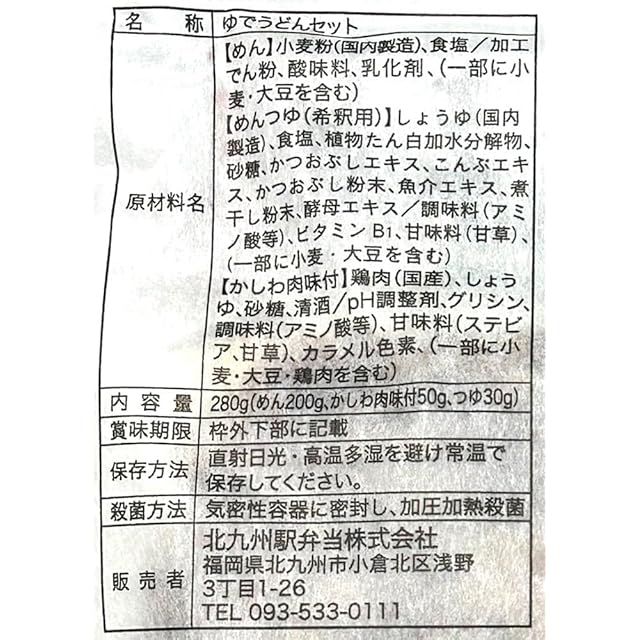 名称 ゆでうどんセット
原材料名
【めん】小麦粉(国内製造)、食塩/加工
でん粉、酸味料、乳化剤、(一部に小
麦・大豆を含む)
【めんつゆ(希釈用)】しょうゆ(国内
製造)、食塩、植物たん白加水分解物、
砂糖、かつおぶしエキス、こんぶエキ
ス、かつおぶし粉末、魚介エキス、煮
干し粉末、酵母エキス/調味料(アミ
ノ酸等)、ビタミンB1、甘味料(甘草)、
(一部に小麦・大豆を含む)
【かしわ肉味付】鶏肉(国産)、しょう
ゆ、砂糖、清酒/pH調整剤、グリシン、
調味料(アミノ酸等)、甘味料(ステビ
ア、甘草)、カラメル色素、(一部に小
麦・大豆・鶏肉を含む)
内容量 280g(めん200g、かしわ肉味付50g、つゆ30g)
賞味期限 枠外下部に記載
保存方法 直射日光・高温多湿を避け常温で
保存してください。
殺菌方法 気密性容器に密封し、加圧加熱殺菌
販売者 北九州駅弁当株式会社
福岡県北九州市小倉北区浅野
3丁目1-26
TEL 093-533-0111